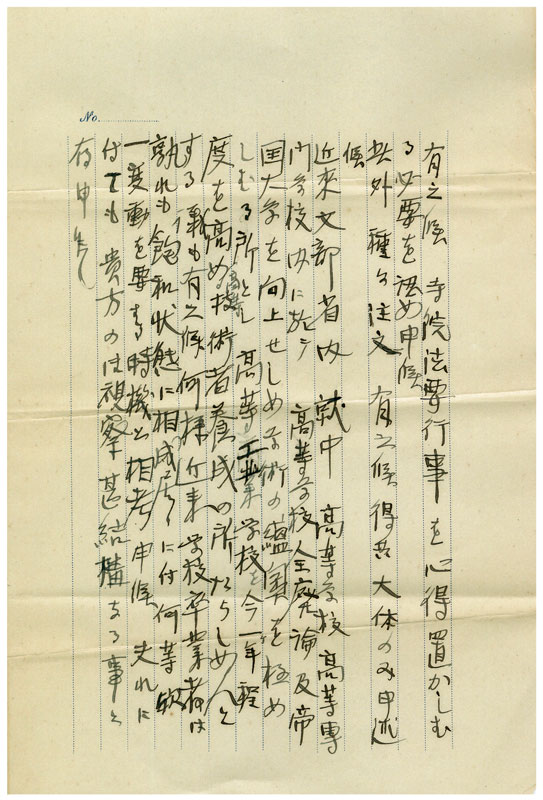 No.
有之候 寺院法要行事を心得置かしむ
る必要を認め申候
此外種々注文有之候得共大体のみ申述
候
近来文部省内就中高等学校高等専
門学校内に於テ高等学校全廃論及帝
国大学を向上せしめ学術の蘊奥を極め
しむる所とし高等工業学校を今一年程
度を高め高等技術者養成の所たらしめんと
する 有之候何様近来学校卒業者は
孰れも飽和状態に相成居候に付何等
一変動を要する時機と相考申候 夫れに
付ても貴方の御視察甚結構なる事と
存申候